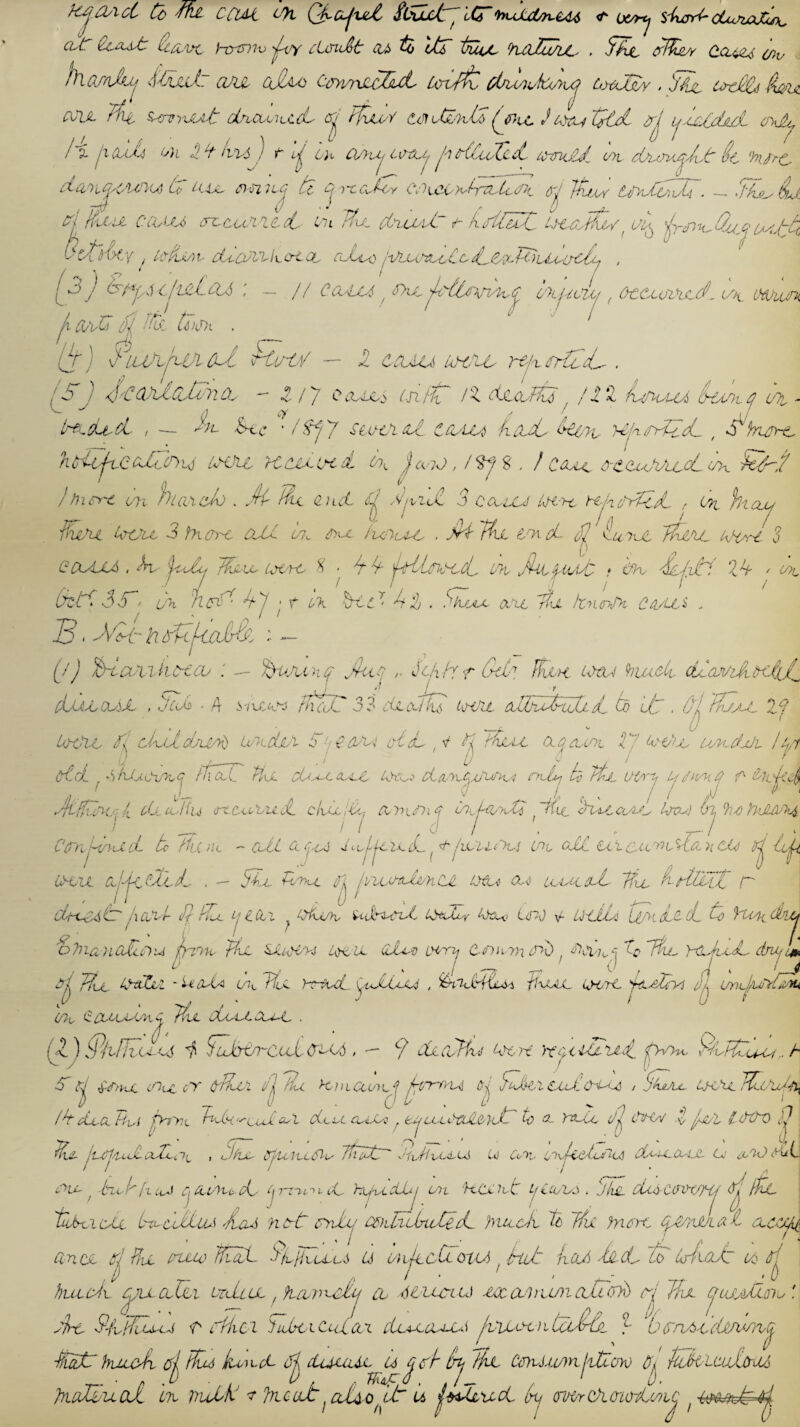 regard to the case in Chapel Street, its mildness & very short duration
at least leave room for doubt as to its true nature. The other cases in
Manley Street are also connected with drinking water. The wells here
are the soonest drained of their contents (one I was told of yielded only
1½ pails in 24 hrs) & if in any way polluted would in drought be more
dangerous to use owing to greater concentration of their contents. — The
of these cases occurred in the driest & hottest weather, viz from August to
October, when diarrhoea also prevailed extensively.
(3) Erysipelas : — 11 cases, one following injury, occurred in various
parts of the town.
(4) Puerperal Fever — 2 cases were reported.
(5) Scarlatina — 217 cases with 12 deaths, 122 houses being in-
vaded, — In Decr 1897 several cases had been reported, 5 more
notifications were received in Jany, 1898. 1 case occurred in Feby
1 more in March. At the end of April 3 cases were reported; in May
there were 3 more all in one house. At the end of June there were 3
cases. In July there were 8; 44 followed in August; in Septr 24; in
Octr 35; in Novr 47; & in Decr 42. These are the known cases.
B. Not notifiable : —
(1) Diarrhoea : — During Aug, Septr & Octr there was much diarrhoeal
disease. Tab. A shews that 33 deaths were attributed to it. Of these 29
were of children under 5 years old, & of these again 27 were under 1 yr
old, shewing that the disease was dangerous only to the very young &
Although deaths occurred chiefly among infants, the disease was by no means
confined to them — all ages suffered, & persons in all circumstances of life
were affected. — The time of prevalence was as usual the hottest &
driest part of the year, when subsoil water was low & wells tended to run dry
Emanations from the sewers were also very common, owing to the rapid drying
of the water-seals in the road gullies, Doubtless these were factors of importance
in causing the disease.
(2) Phthisis & Tuberculosis. — 9 deaths were registered from Phthisis, &
5 of some one or other of the remaining forms of Tuberculosis, There were therefore
14 deaths from Tubercular diseases, equivalent to a rate of over 2 per 1000 of
the population, The opinion that Phthisis is an infectious disease is an old
one, but has gained ground rapidly in recent years. The discovery of the
tubercle bacillus has not only contributed much to the more general accept
ance of the view that Phthisis is infectious, but has led to what is of
much greater value, namely a serious examination of the question:
Are Phthisis & other Tubercular diseases preventable? Considering
that much of this kind of disease is got by the consumption of tuberculous
material in milk & meat, also that it is fostered by overcrowding, want of